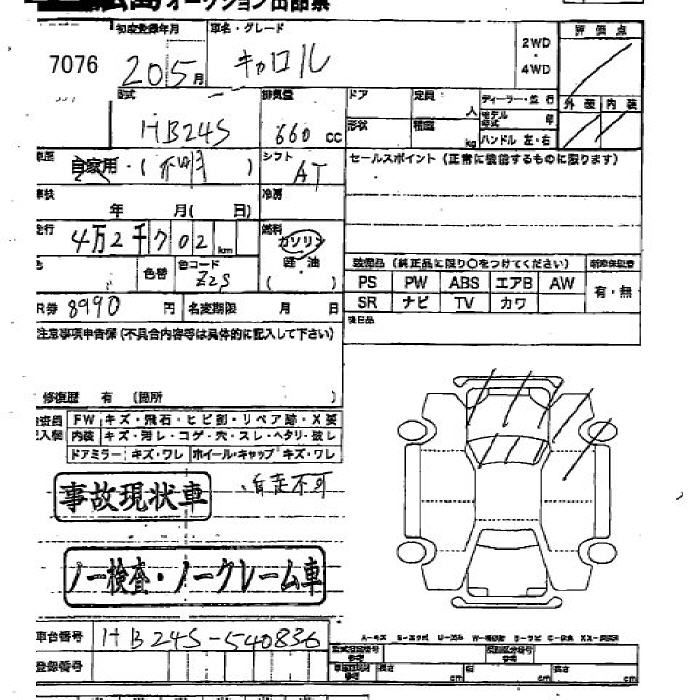 オークション出品票
初度登録年月 車名・グレード 2WD・4WD 評価点
7076 20 5月 キャロル
型式 排気量 ドア 定員 人 ディーラー・並行 外装 内装
HB24S 660cc 形状 積載 kg モデル年式 年
ハンドル 左・右
車歴 自家用・(不明) シフト AT セールスポイント(正常に機能するものに限ります)
車検 年 月(日) 冷房
走行 4万2千702km 燃料 ガソリン
軽・油
( )
色 色替 色コード Z2S
装備品(純正品に限り○をつけてください) 新車保証書
PS PW ABS エアB AW 有・無
SR ナビ TV カワ
R券 8990円 名変期限 月 日
後日品
注意事項申告欄(不具合内容等は具体的に記入して下さい)
修復歴 有(箇所 )
検査員記入欄 FW キズ・飛石・ヒビ割・リペア跡・X要
内装 キズ・汚レ・コゲ・穴・スレ・ヘタリ・破レ
ドアミラー キズ・ワレ ホイール・キャップ キズ・ワレ
事故現状車 ・自走不可
ノー検査・ノークレーム車
車台番号 HB24S-540836
登録番号
長さ cm 幅 cm 高さ cm